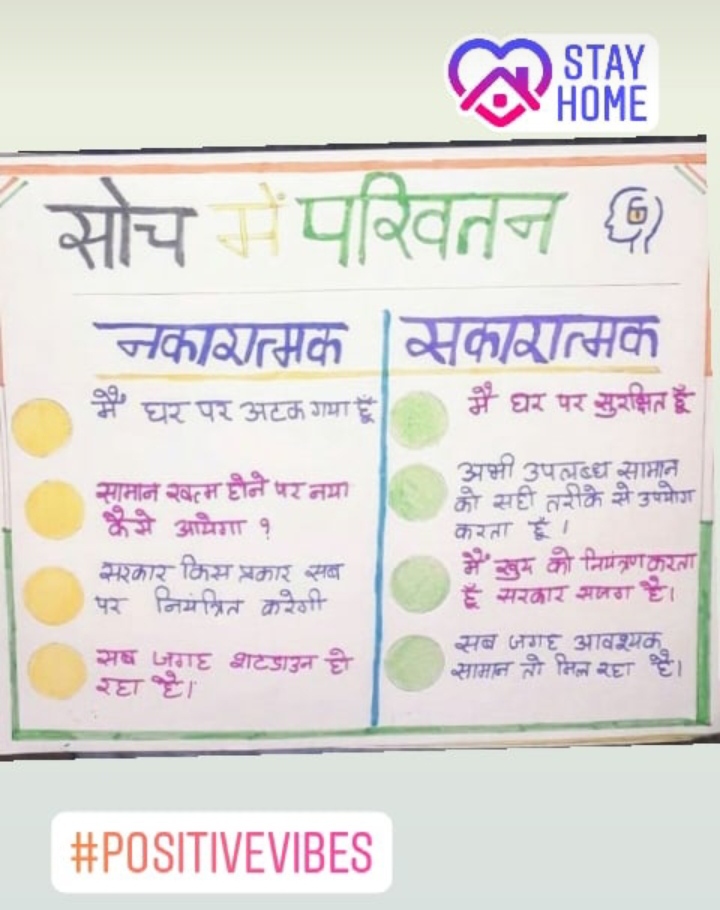 STAY
HOME
सोच में परिवतन
नकारात्मक
मैं घर पर अटक गया हूँ
सामान खत्म होने पर नया
कैसे आयेगा ?
सरकार किस प्रकार सब
पर नियंत्रित करेगी
सब जगह शटडाउन हो
रहा है।
सकारात्मक
मै घर पर सुरक्षित हूँ
अभी उपलब्ध सामान
को सही तरीके से उपयोग
करता हूँ ।
मैं खुद को नियंत्रण करता
हूँ सरकार सजग है।
सब जगह आवश्यक
सामान तो मिल रहा है।
#POSITIVEVIBES